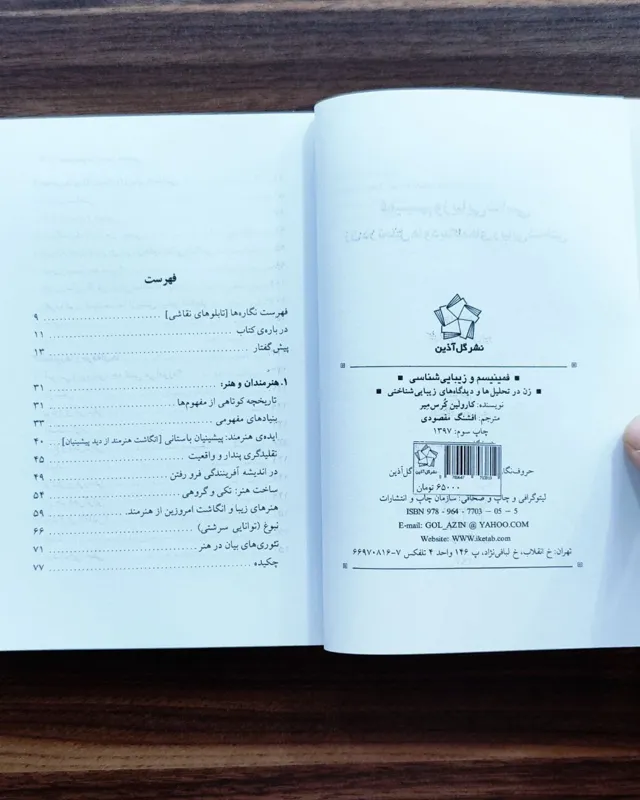 نشر گل‌آذین
■ فمینیسم و زیبایی‌شناسی ■
■ زن در تحلیل‌ها و دیدگاه‌های زیبایی‌شناختی ■
نویسنده: کارولین کُرس‌میر
مترجم: افشنگ مقصودی
چاپ سوم: ۱۳۹۷
حروف‌نگا گل آذین
۶۵۰۰۰ تومان
لیتوگرافی و چاپ و صحافی: سازمان چاپ و انتشارات
ISBN 978 - 964 - 7703 - 05 - 5
E-mail: GOL_AZIN @ YAHOO.COM
Website: WWW.iketab.com
تهران: خ انقلاب، خ لبافی‌نژاد، پ ۱۴۶ واحد ۴ تلفکس ۷-۶۶۹۷۰۸۱۶
فهرست
فهرست نگاره‌ها [تابلوهای نقاشی] ۹
درباره‌ی کتاب ۱۱
پیش‌گفتار ۱۳
۱. هنرمندان و هنر: ۳۱
تاریخچه کوتاهی از مفهوم‌ها ۳۱
بنیادهای مفهومی ۳۳
ایده‌ی هنرمند: پیشینیان باستانی [انگاشت هنرمند از دید پیشینیان] ۴۰
تقلیدگری پندار و واقعیت ۴۵
در اندیشه آفرینندگی فرو رفتن ۴۹
ساخت هنر: تکی و گروهی ۵۴
هنرهای زیبا و انگاشت امروزین از هنرمند. ۵۹
نبوغ (توانایی سرشتی) ۶۶
تئوری‌های بیان در هنر ۷۱
چکیده ۷۷